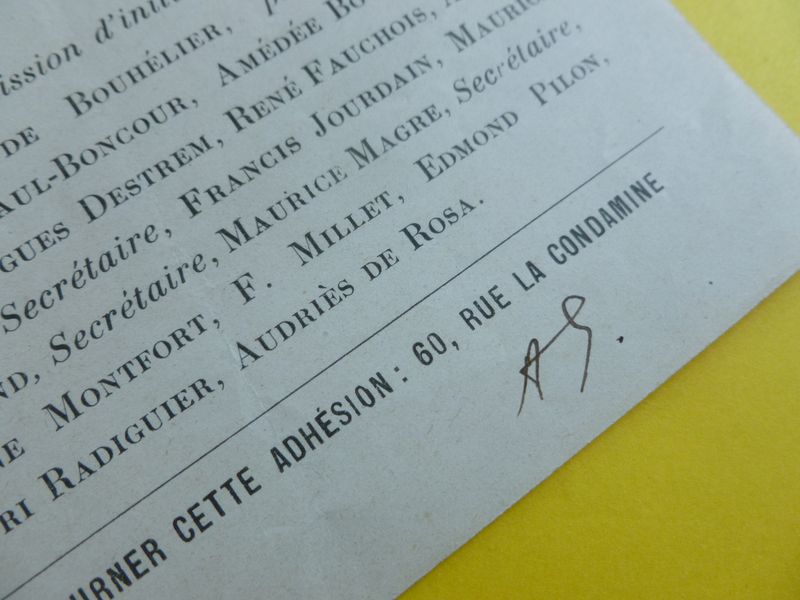 ission d'initi
DE BOUHÉLIER, p
AUL-BONCOUR, AMÉDÉE BO
GUES DESTREM, RENÉ FAUCHOIS, A
Secrétaire, FRANCIS JOURDAIN, MAURIC
ND, Secrétaire, MAURICE MAGRE, Secrétaire,
NE MONTFORT, F. MILLET, EDMOND PILON,
RI RADIGUIER, AUDRIÈS DE ROSA.
URNER CETTE ADHÉSION : 60, RUE LA CONDAMINE
AS.